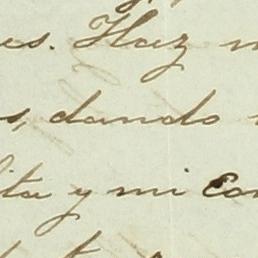 es. Haz
s, dando
ita y mi Con